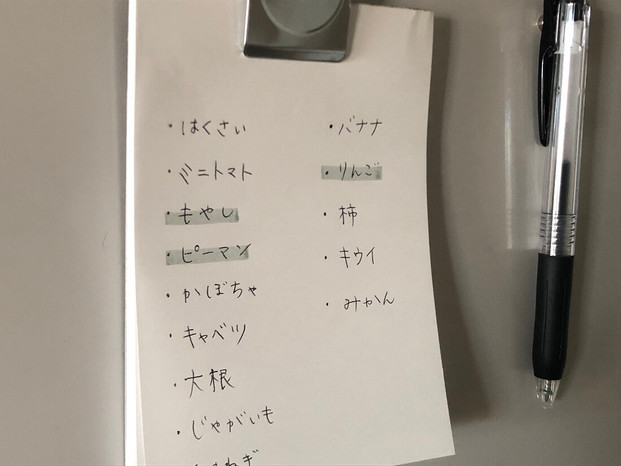 ・はくさい
・ミニトマト
・もやし
・ピーマン
・かぼちゃ
・キャベツ
・大根
・じゃがいも
・バナナ
・りんご
・柿
・キウイ
・みかん